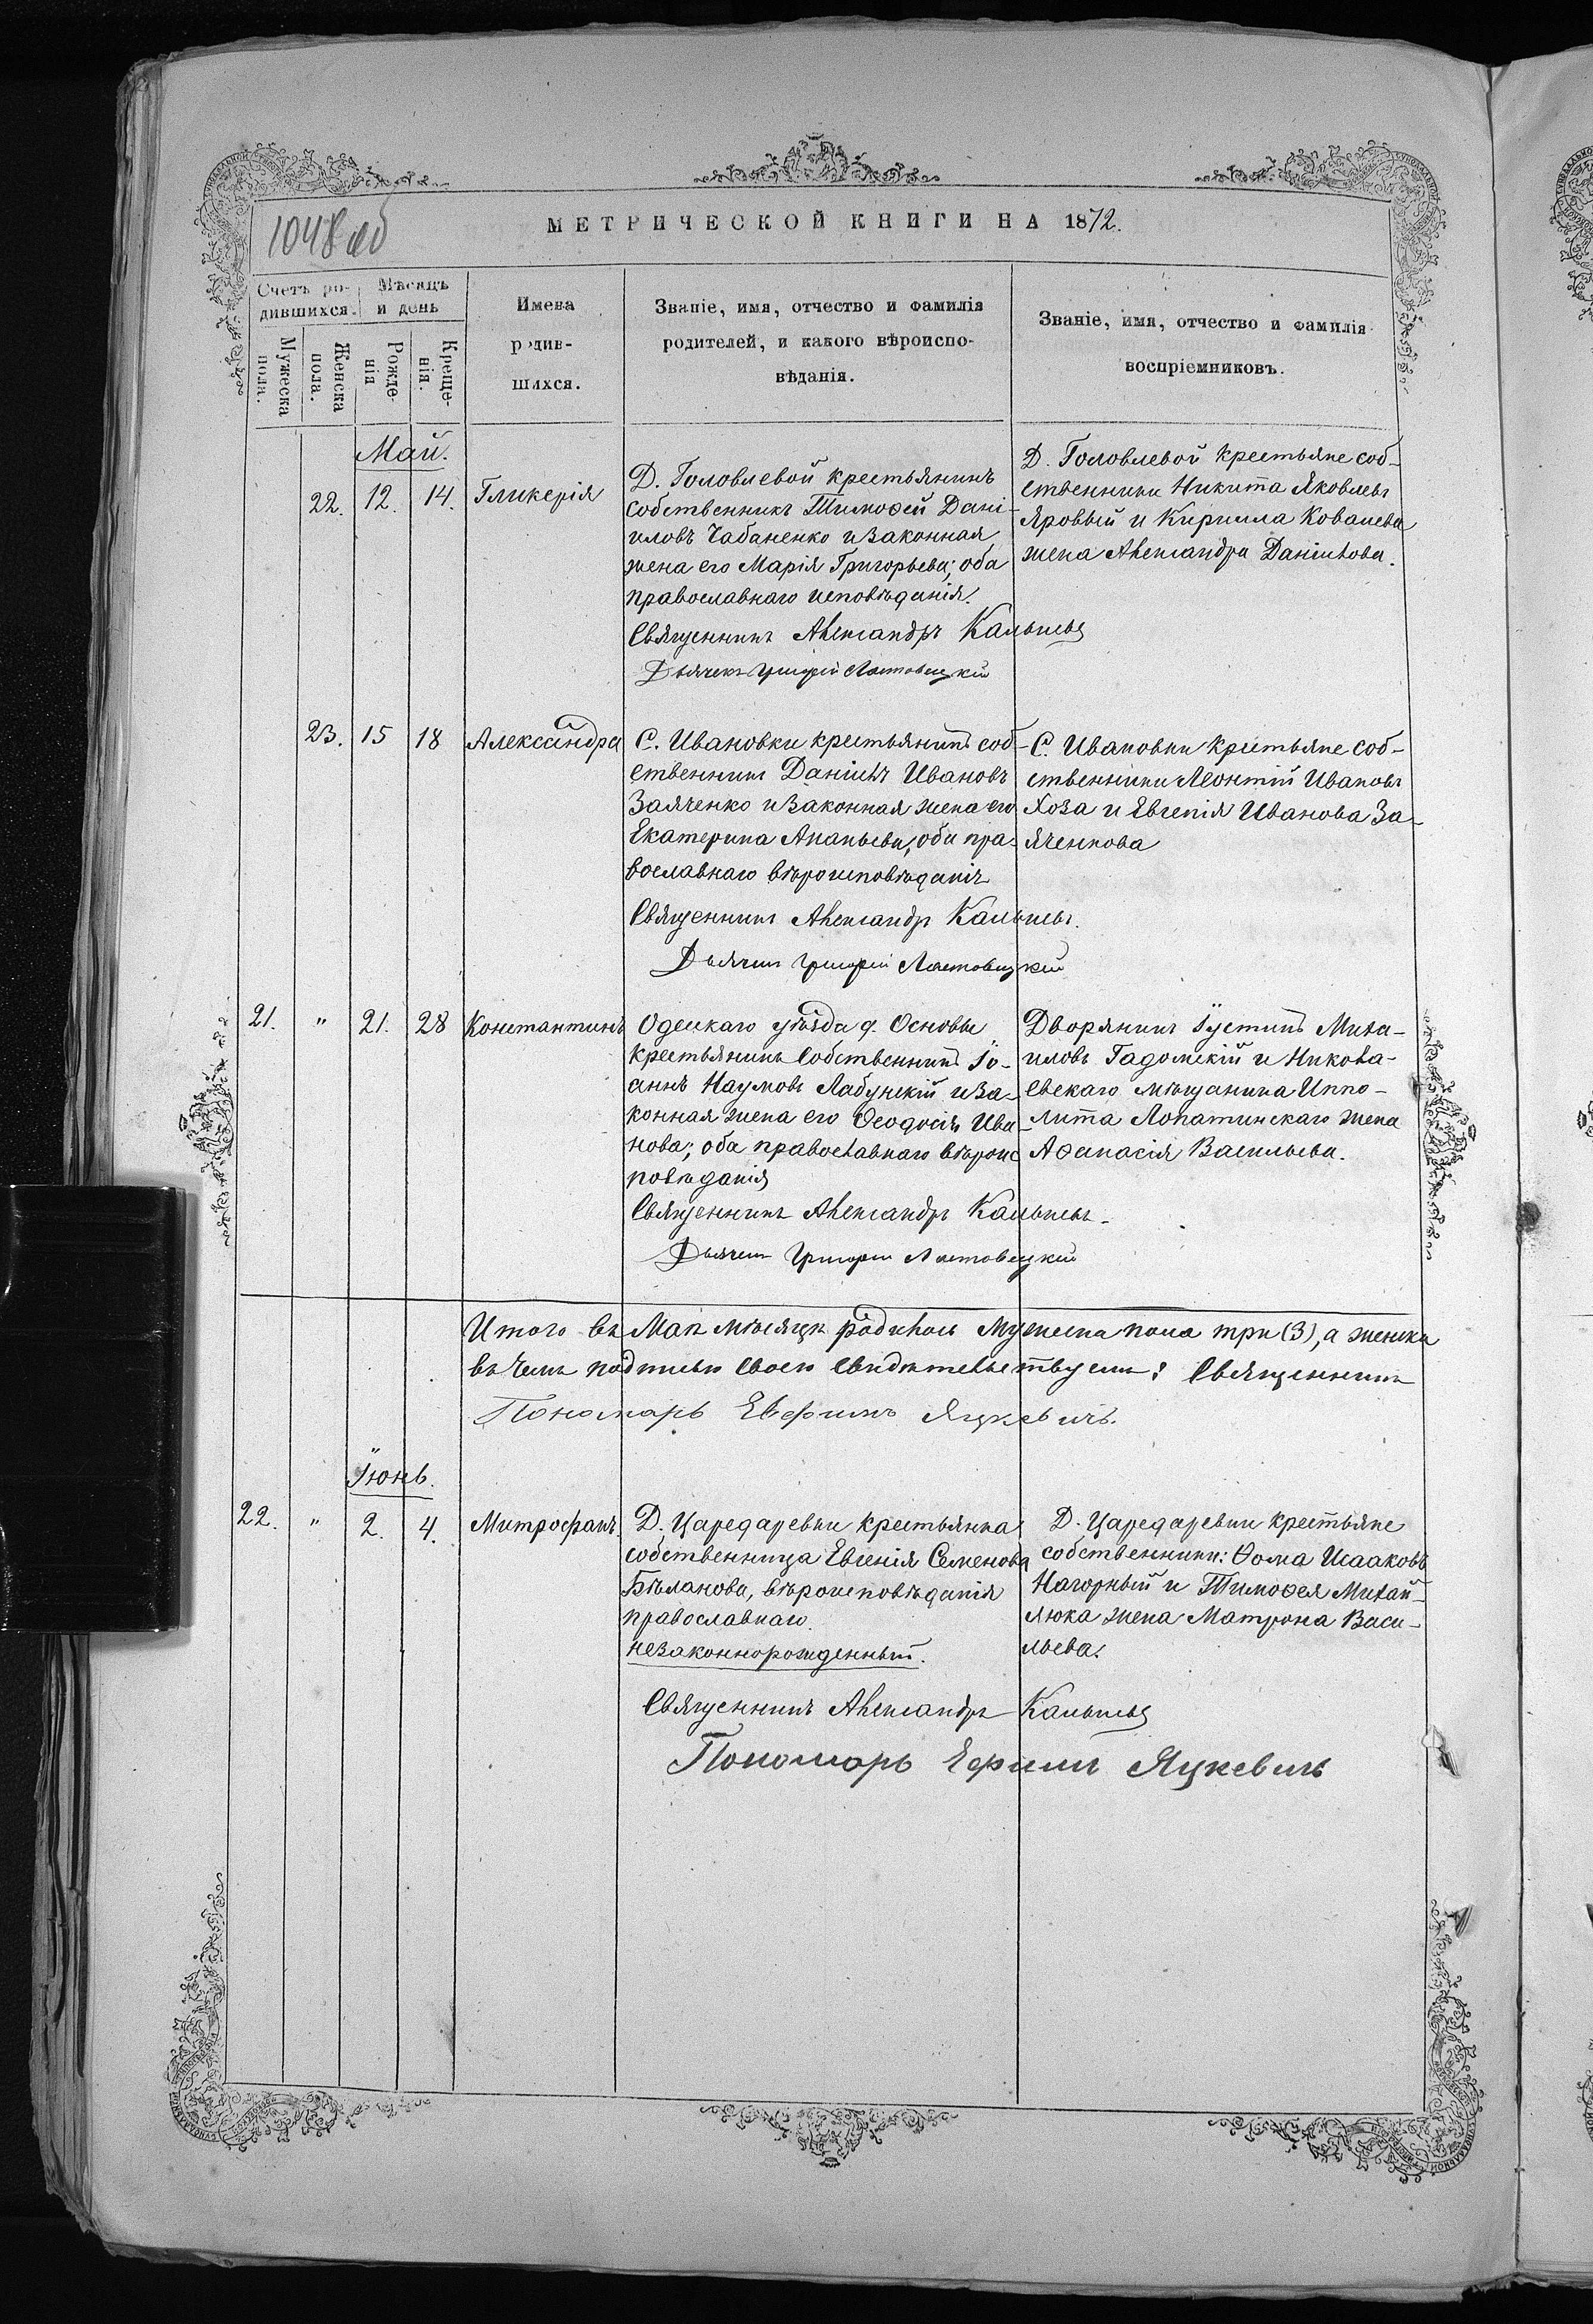 1048 об
МЕТРИЧЕСКОЙ КНИГИ НА 1872.
Счетъ ро-
дившихся.
Мѣсяцъ
и день
Мужеска
пола.
Женска
пола.
Рожде-
нія
Креще-
нія.
Имена
родив-
шихся.
Званіе, имя, отчество и фамилія
родителей, и какого вѣроиспо-
вѣданія.
Званіе, имя, отчество и фамилія
воспріемниковъ.
Май.
22. 12. 14. Гликерія
Д. Головлевой крестьянинъ
собственникъ Тимоѳей Дані-
иловъ Чабаненко и законная
жена его Марія Григорьева; оба
православнаго исповѣданія.
Священникъ Александръ
Дьячекъ Григорій
Д. Головлевой крестьяне соб-
ственники Никита Яковлевъ
Яровый и Кирилла Ковалева
жена Александра Даніилова.
23. 15 18 Александра
С. Ивановки крестьянинъ соб-
ственникъ Даніилъ Ивановъ
Заяченко и законная жена его
Екатерина Ананьева, оба пра-
вославнаго вѣроисповѣданія
Священникъ Александръ
Дьячекъ Григорій
С. Ивановки крестьяне соб-
ственники Леонтій Ивановъ
Хоза и Евгенія Иванова За-
яченкова
21. " 21. 28 Константинъ
Одесскаго уѣзда д. Основы
крестьянинъ собственникъ Іо-
аннъ Наумовъ Лабунскій и за-
конная жена его Ѳеодосія Ива-
нова; оба православнаго вѣроис
повѣданія
Священникъ Александръ
Дьячекъ Григорій
Дворянинъ Іустинъ Миха-
иловъ Гадомскій и Никола-
евскаго мѣщанина Иппо-
лита Лопатинскаго жена
Аѳанасія Васильева.
Итого въ Маѣ мѣсяцѣ родилось мужеска пола три (3), а женска
въ чемъ подписью своею свидѣтельствуемъ: Священникъ
Пономарь Евфимъ Яцкевичъ.
Іюнь.
22. " 2. 4. Митрофанъ.
Д. Царедаревки крестьянка
собственница Евгенія Семенова
Бѣланова, вѣроисповѣданія
православнаго.
незаконнорожденный.
Д. Царедаревки крестьяне
собственники: Ѳома Исааковъ
Нагорный и Тимоѳея Михай-
люка жена Матрона Васи-
льева.
Священникъ Александръ
Пономарь Ефимъ Яцкевичъ